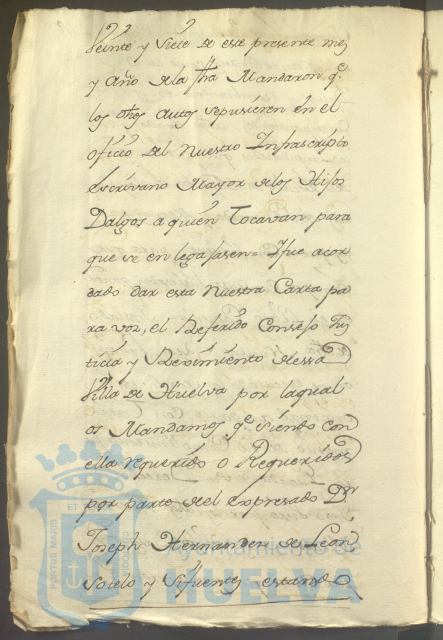 Veinte y Siete de este presente mes
y Año de la fha Mandaron q.e
los dhos Autos sepusieren en el
oficio del Nuestro Infrascripto
Escrivano Mayor delos Hijos
Dalgo a quien Tocavan para
que se en legajasen = Ifue acor
dado dar esta Nuestra Carta pa
ra vos, el Referido Consejo Jus
ticia y Reximiento dessa
Villa de Huelva por laqual
os Mandamos q.e siendo con
ella requerido o Requeridos
por parte del expresado Dn
Joseph Hernandez de Leon
Sotelo y Sifuentes estando
Ayuntamiento de
HUELVA
PORTUS MARIS
ET